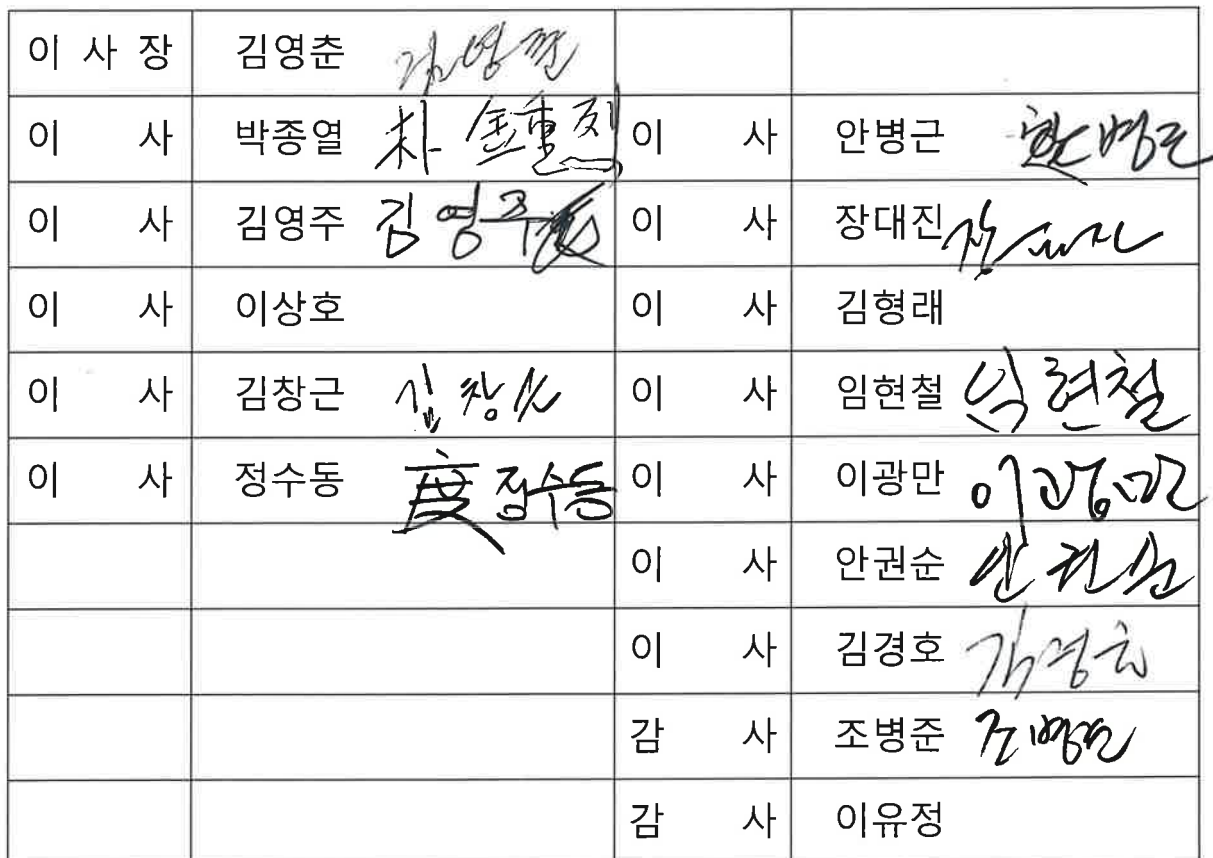 이 사 장 김영춘 김영춘
이 사 박종열 朴鍾烈 이 사 안병근 안병근
이 사 김영주 김영주 이 사 장대진
이 사 이상호 이 사 김형래
이 사 김창근 김창근 이 사 임현철 임현철
이 사 정수동 정수동 이 사 이광만 이광만
이 사 안권순 안권순
이 사 김경호 김경호
감 사 조병준 조병준
감 사 이유정